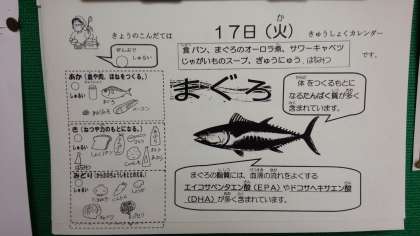 きょうのこんだては
17日(火)
きゅうしょくカレンダー
ぜんぶで
しゅるい
食パン、まぐろのオーロラ煮、サワーキャベツ
じゃがいものスープ、ぎゅうにゅう、はちみつ
です。
あか(血や肉、ほねをつくる。)
しゅるい
まぐろ
体をつくるもとに
なるたんぱく質が多く
含まれています。
き(ねつや力のもとになる。)
しゅるい
みどり
しゅるい
まぐろの脂質には、血液の流れをよくする
エイコサペンタエン酸(EPA)やドコサヘキサエン酸
(DHA)が多く含まれています。